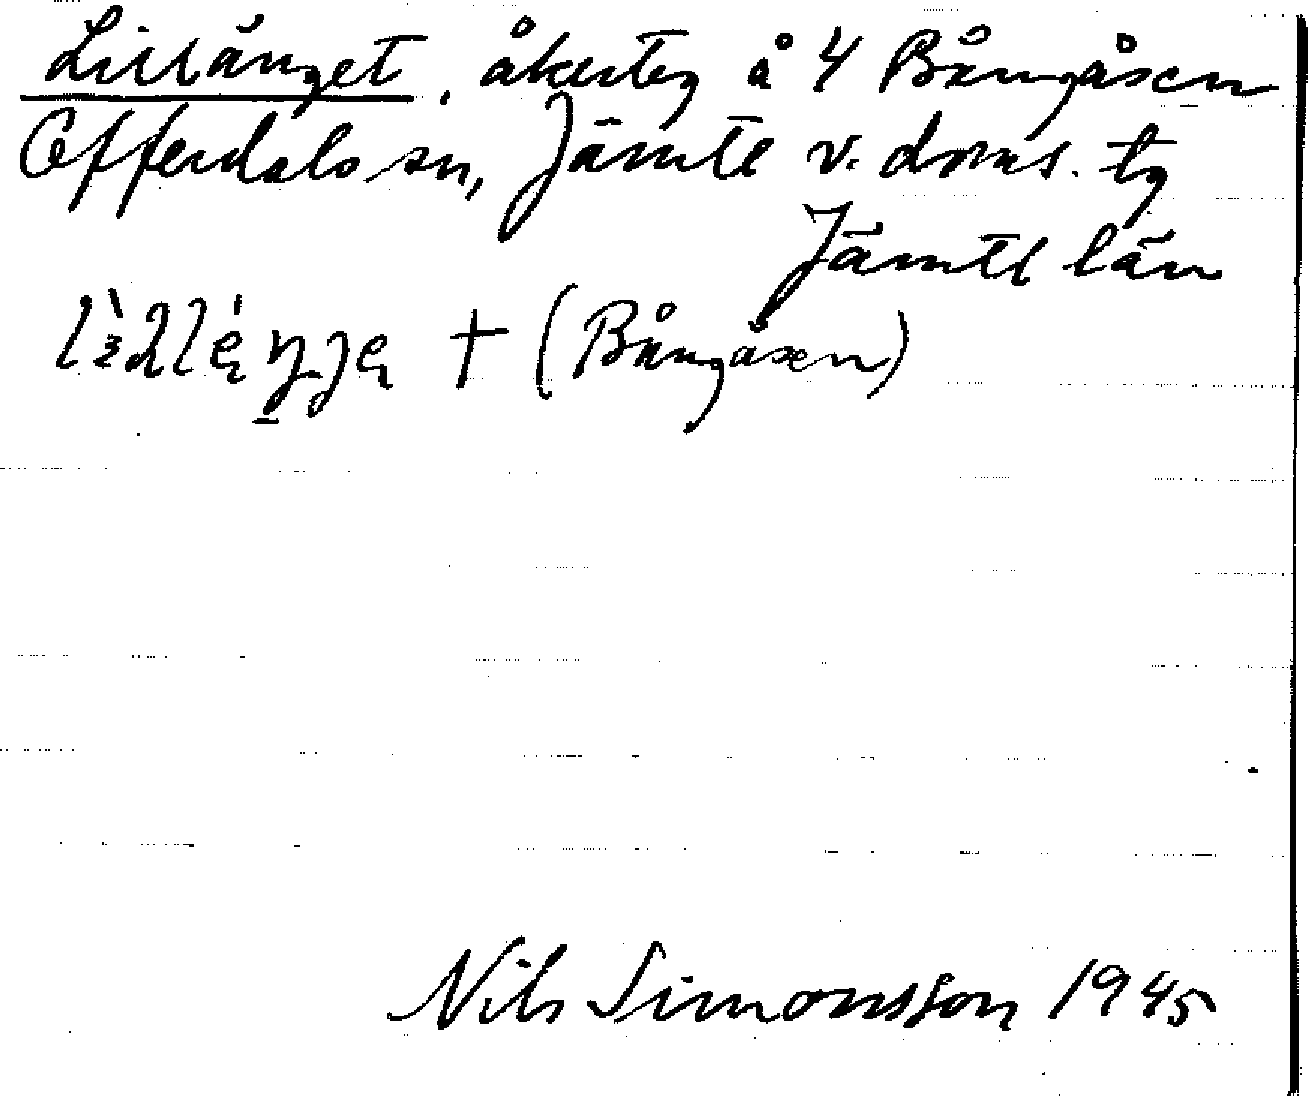 Lillänget, åkerteg å 4 Bångåsen
Offerdals sn, Jämtl v. doms. tg
Jämtl län
† (Bångåsen)
Nils Simonsson 1945